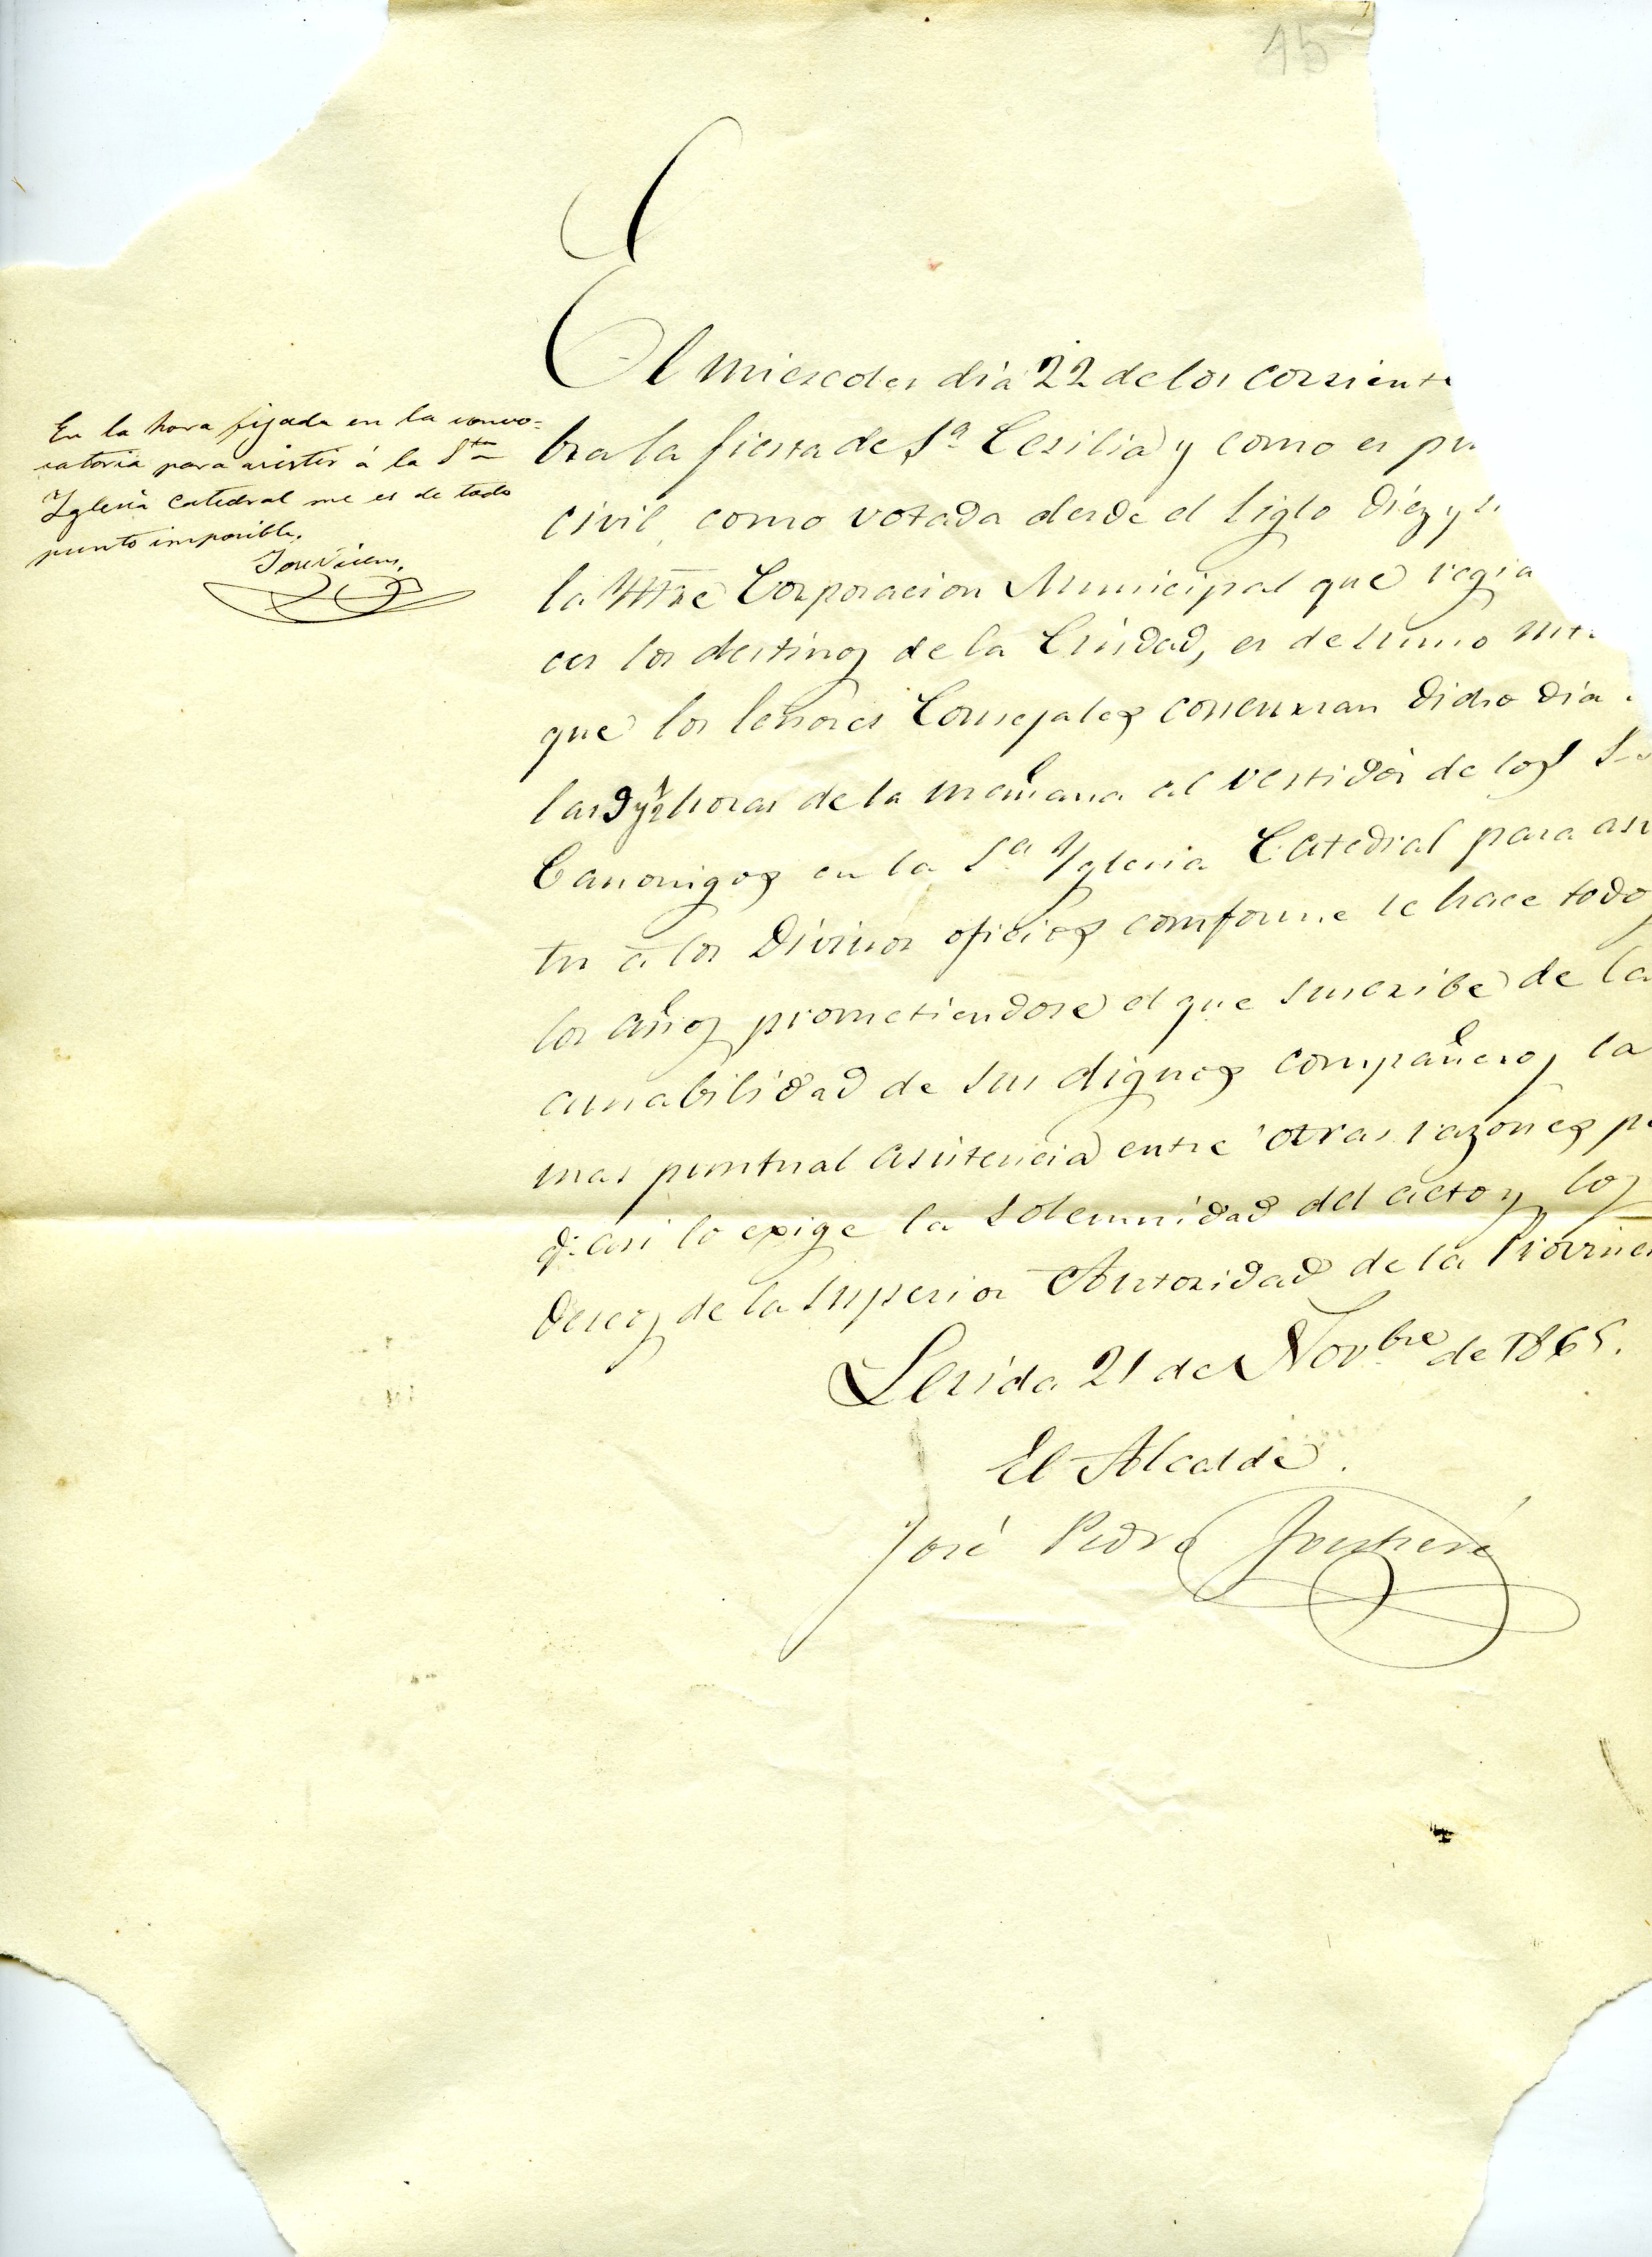 15
El miercoles dia 22 de los corriente
bra la fiesta de Sª Cesilia y como es pu
civil, como votada desde el siglo diez y s
la Iltre Corporacion Municipal que regia
ces los destinos de la Ciudad, es de sumo int
que los señores Consejales concurran dicho dia
las 9 y ½ horas de la mañana al vestidor de los S
Canonigos en la Sª Yglesia Catedral para asis
tir á los Divinos oficios comforme se hace todos
los años prometiendose el que suscribe de la
amabilidad de sus dignos compañeros la
mas puntual asistencia entre otras razones p
q.e asi lo exige la solemnidad del acto y los
deseos de la superior Autoridad de la Provinci
Lerida 21 de Novbre de 1865.
El Alcalde.
José Pedro
En la hora fijada en la convo=
catoria para asistir á la Sta
Iglesia Catedral me es de todo
punto imposible.
José Vicens.